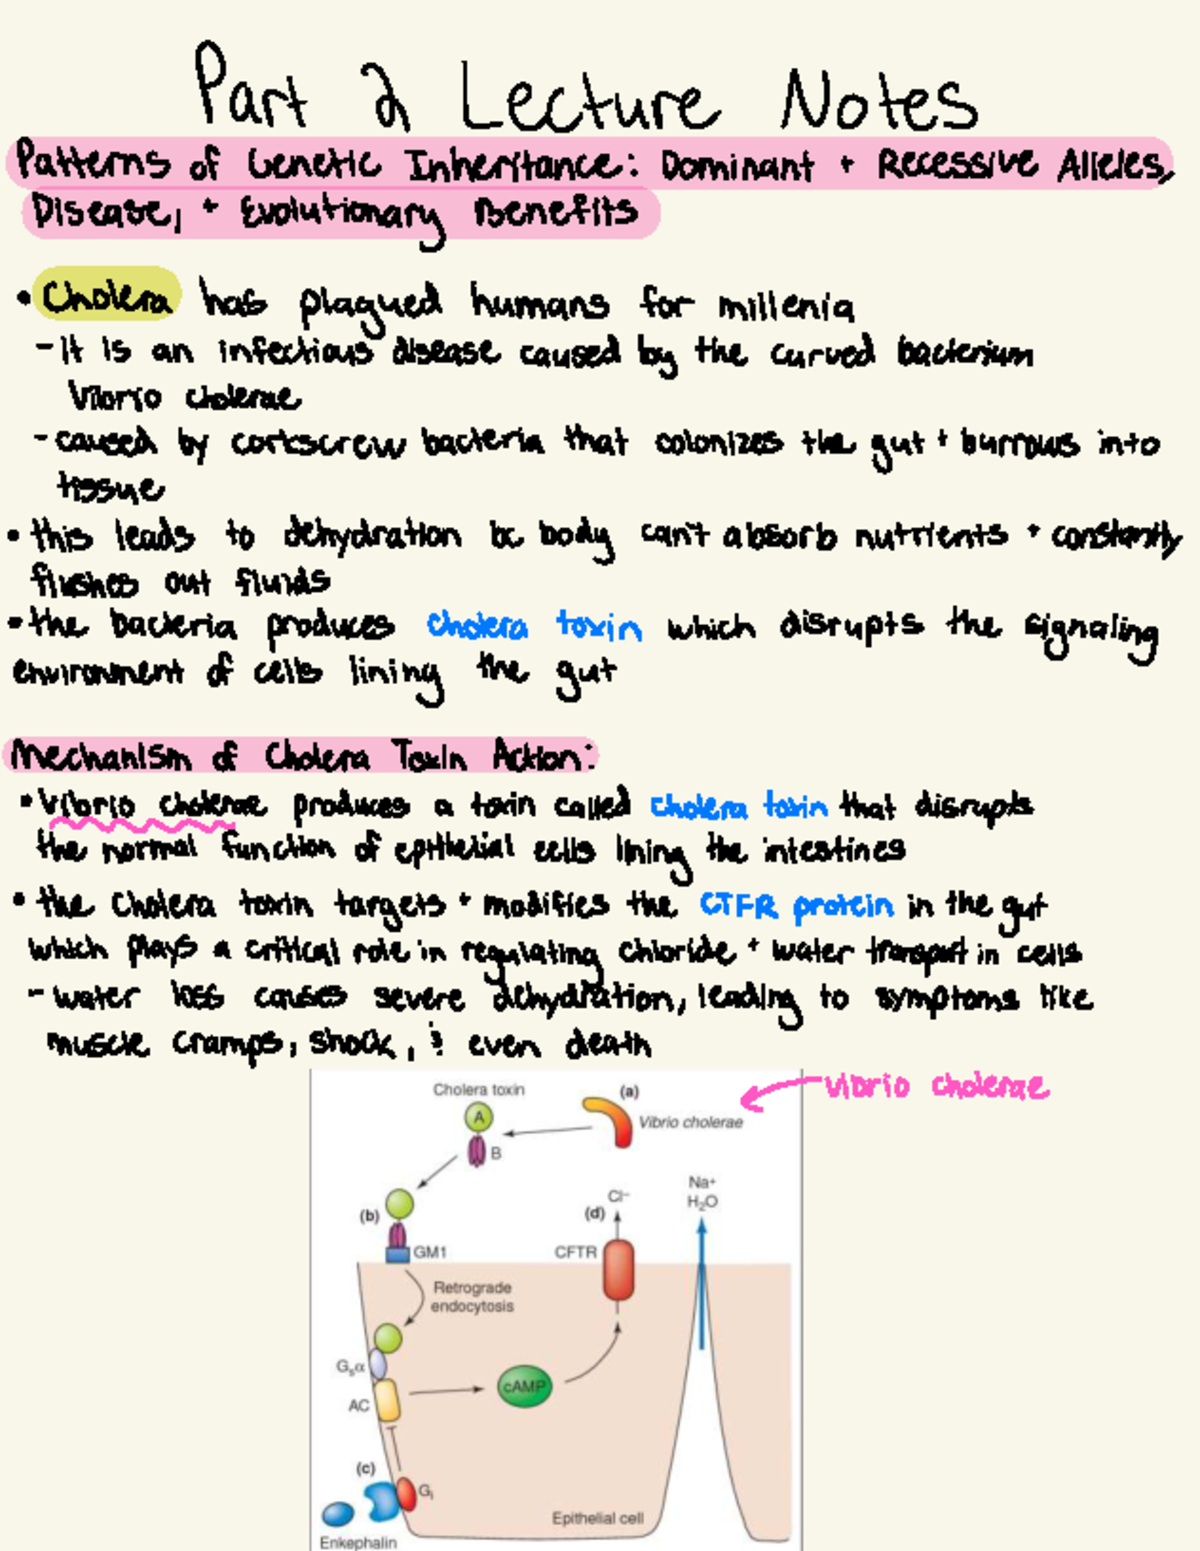 Part 2 Lecture Notes
Patterns of Genetic Inheritance: Dominant + Recessive Alleles,
Disease, + Evolutionary Benefits
• Cholera has plagued humans for millenia
- it is an infectious disease caused by the curved bacterium
Vibrio cholerae
- caused by corkscrew bacteria that colonizes the gut + burrows into
tissue
• this leads to dehydration bc body can't absorb nutrients + constantly
flushes out fluids
• the bacteria produces cholera toxin which disrupts the signaling
environment of cells lining the gut
Mechanism of Cholera Toxin Action:
• Vibrio cholerae produces a toxin called cholera toxin that disrupts
the normal function of epithelial cells lining the intestines
• the cholera toxin targets + modifies the CTFR protein in the gut
which plays a critical role in regulating chloride + water transport in cells
- water loss causes severe dehydration, leading to symptoms like
muscle cramps, shock, & even death
vibrio cholerae
Cholera toxin
(a)
A
Vibrio cholerae
B
Na+
H₂O
Cl⁻
(b)
(d)
GM1
CFTR
Retrograde
endocytosis
Gₛα
cAMP
AC
(c)
Gᵢ
Epithelial cell
Enkephalin